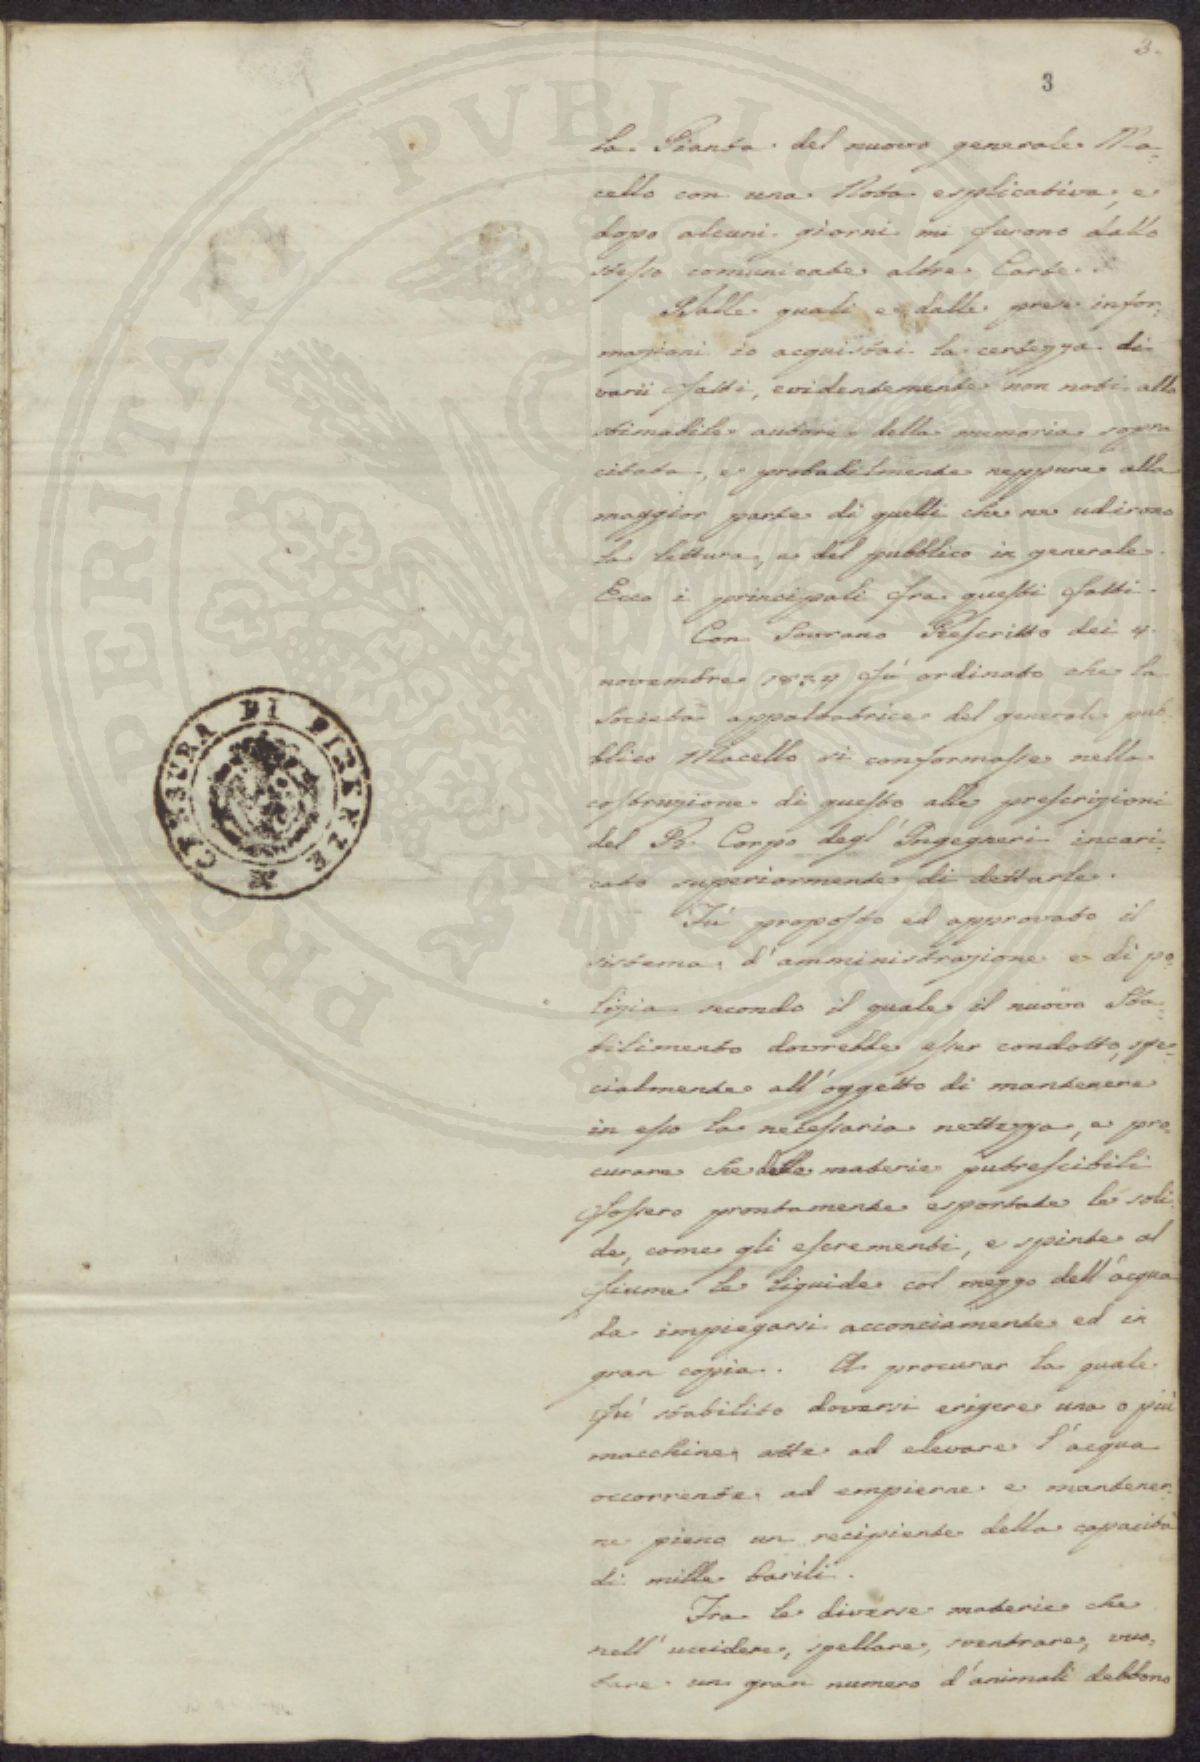 3.
3
la Pianta del nuovo generale Ma-
cello con una Nota esplicativa, e
dopo alcuni giorni mi furono dallo
stesso comunicate altre Carte.
Dalle quali e dalle prese infor-
mazioni io acquistai la certezza di
varii fatti, evidentemente non noti allo
stimabile autore della memoria sopra
citata, e probabilmente neppure alla
maggior parte di quelli che ne udirono
la lettura, e del pubblico in generale.
Ecco i principali fra questi fatti.
Con Sovrano Rescritto dei 4
novembre 1834 fù ordinato che la
Società appaltatrice del generale pub-
blico Macello si conformasse nella
costruzione di questo alle prescrizioni
del R. Corpo degl' Ingegneri incari-
cato superiormente di dettarle.
Fù proposto ed approvato il
sistema d'amministrazione e di po-
lizia secondo il quale il nuovo Sta-
bilimento dovrebbe esser condotto, spe-
cialmente all'oggetto di mantenere
in esso la necessaria nettezza, e pro-
curare che delle materie putrescibili
fossero prontamente esportate le soli-
de, come gli escrementi, e spinte al
fiume le liquide col mezzo dell'acqua
da impiegarsi acconciamente ed in
gran copia. A procurar la quale
fù stabilito doversi erigere una o più
macchine atte ad elevare l'acqua
occorrente ad empierne e mantener-
ne pieno un recipiente della capacità
di mille barili.
Fra le diverse materie che
nell'uccidere, spellare, sventrare, vuo-
tare un gran numero d'animali debbono
CENSURA DI FIRENZE
PROPERITATI PUBLICAE